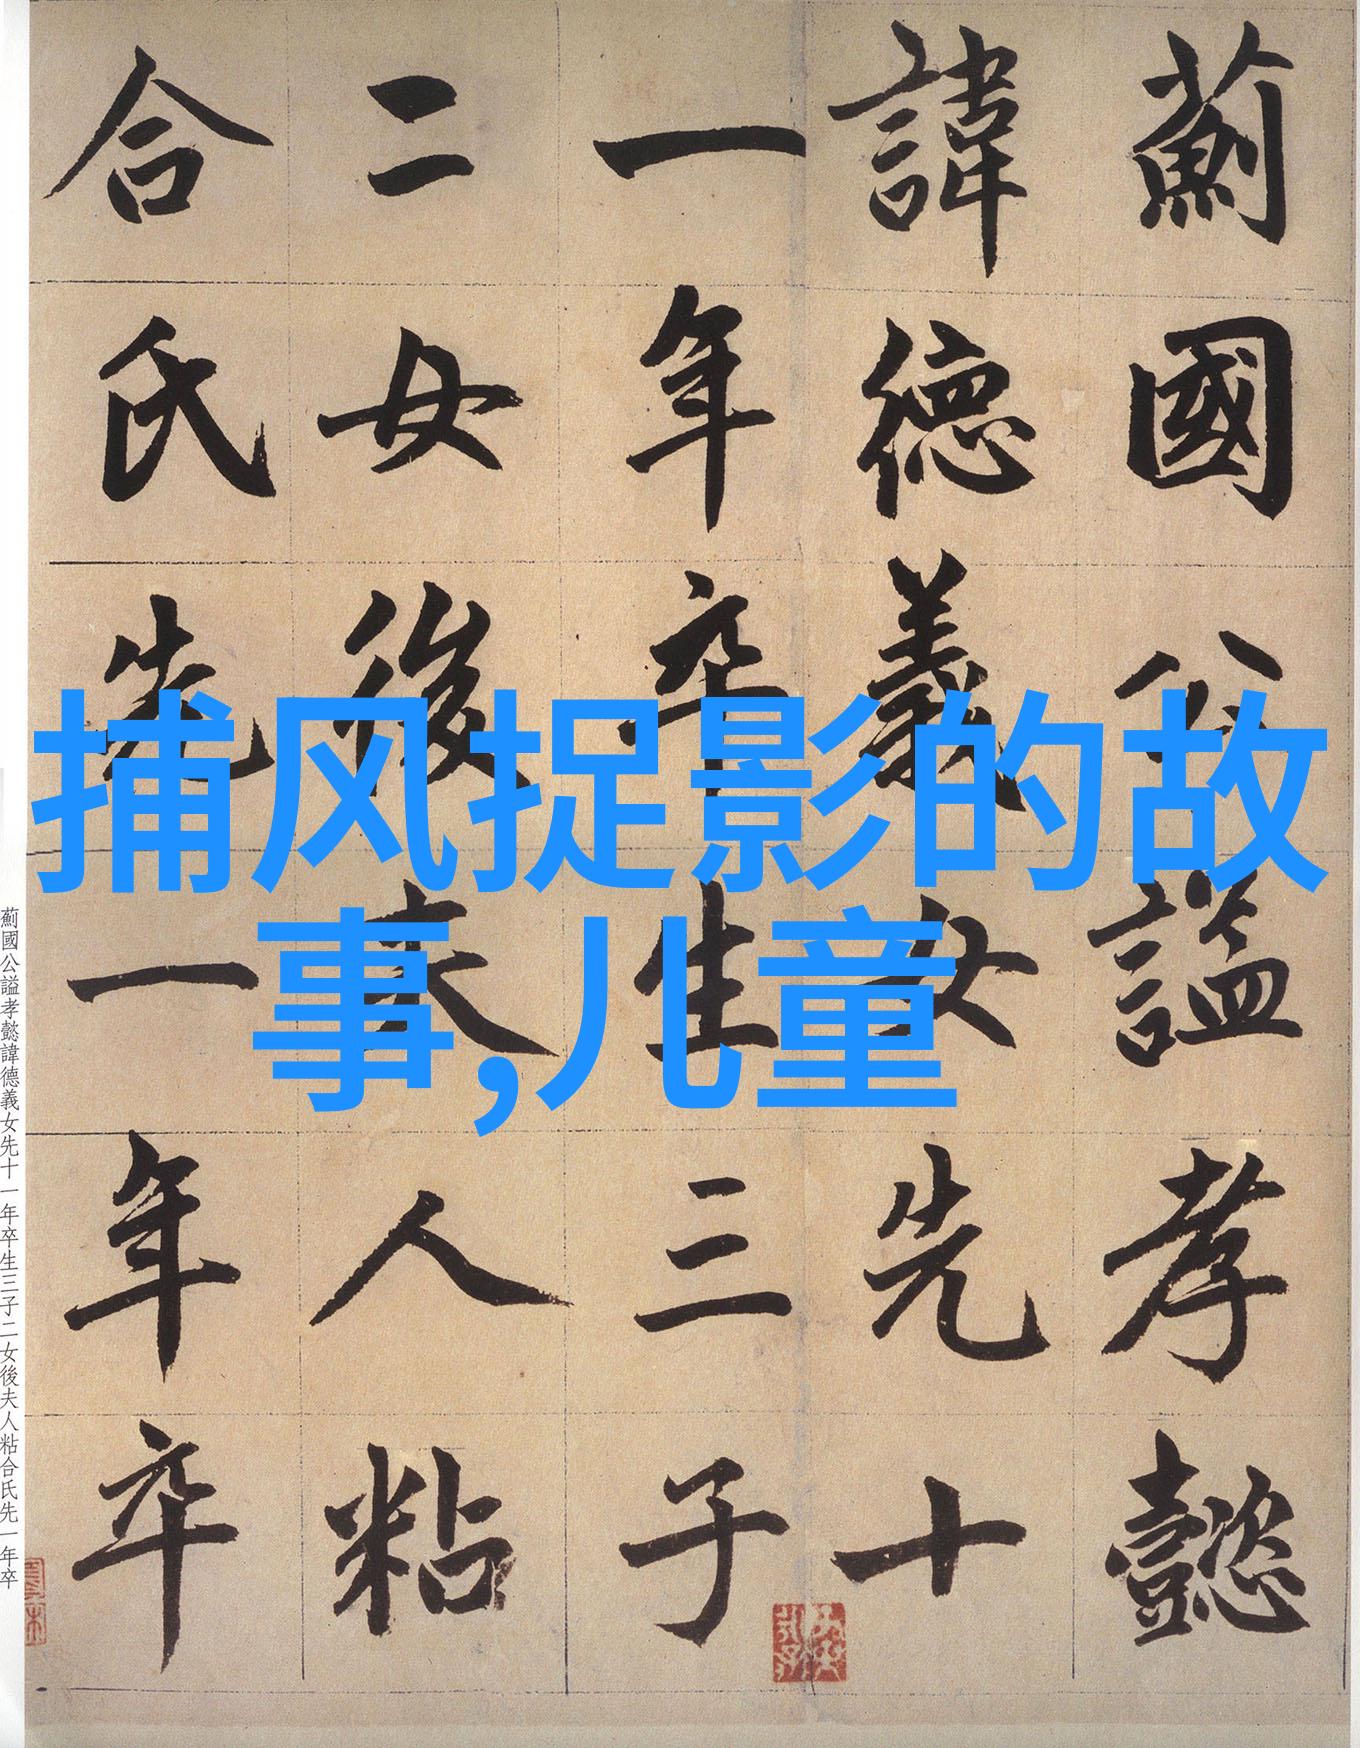 捕风捉影的故
事,儿童
薊國公謚孝懿
諱德義女先十
一年卒生三子
二女後夫人粘
合氏先一年卒
薊國公謚孝懿諱德義女先十一年卒生三子二女後夫人粘合氏先一年卒